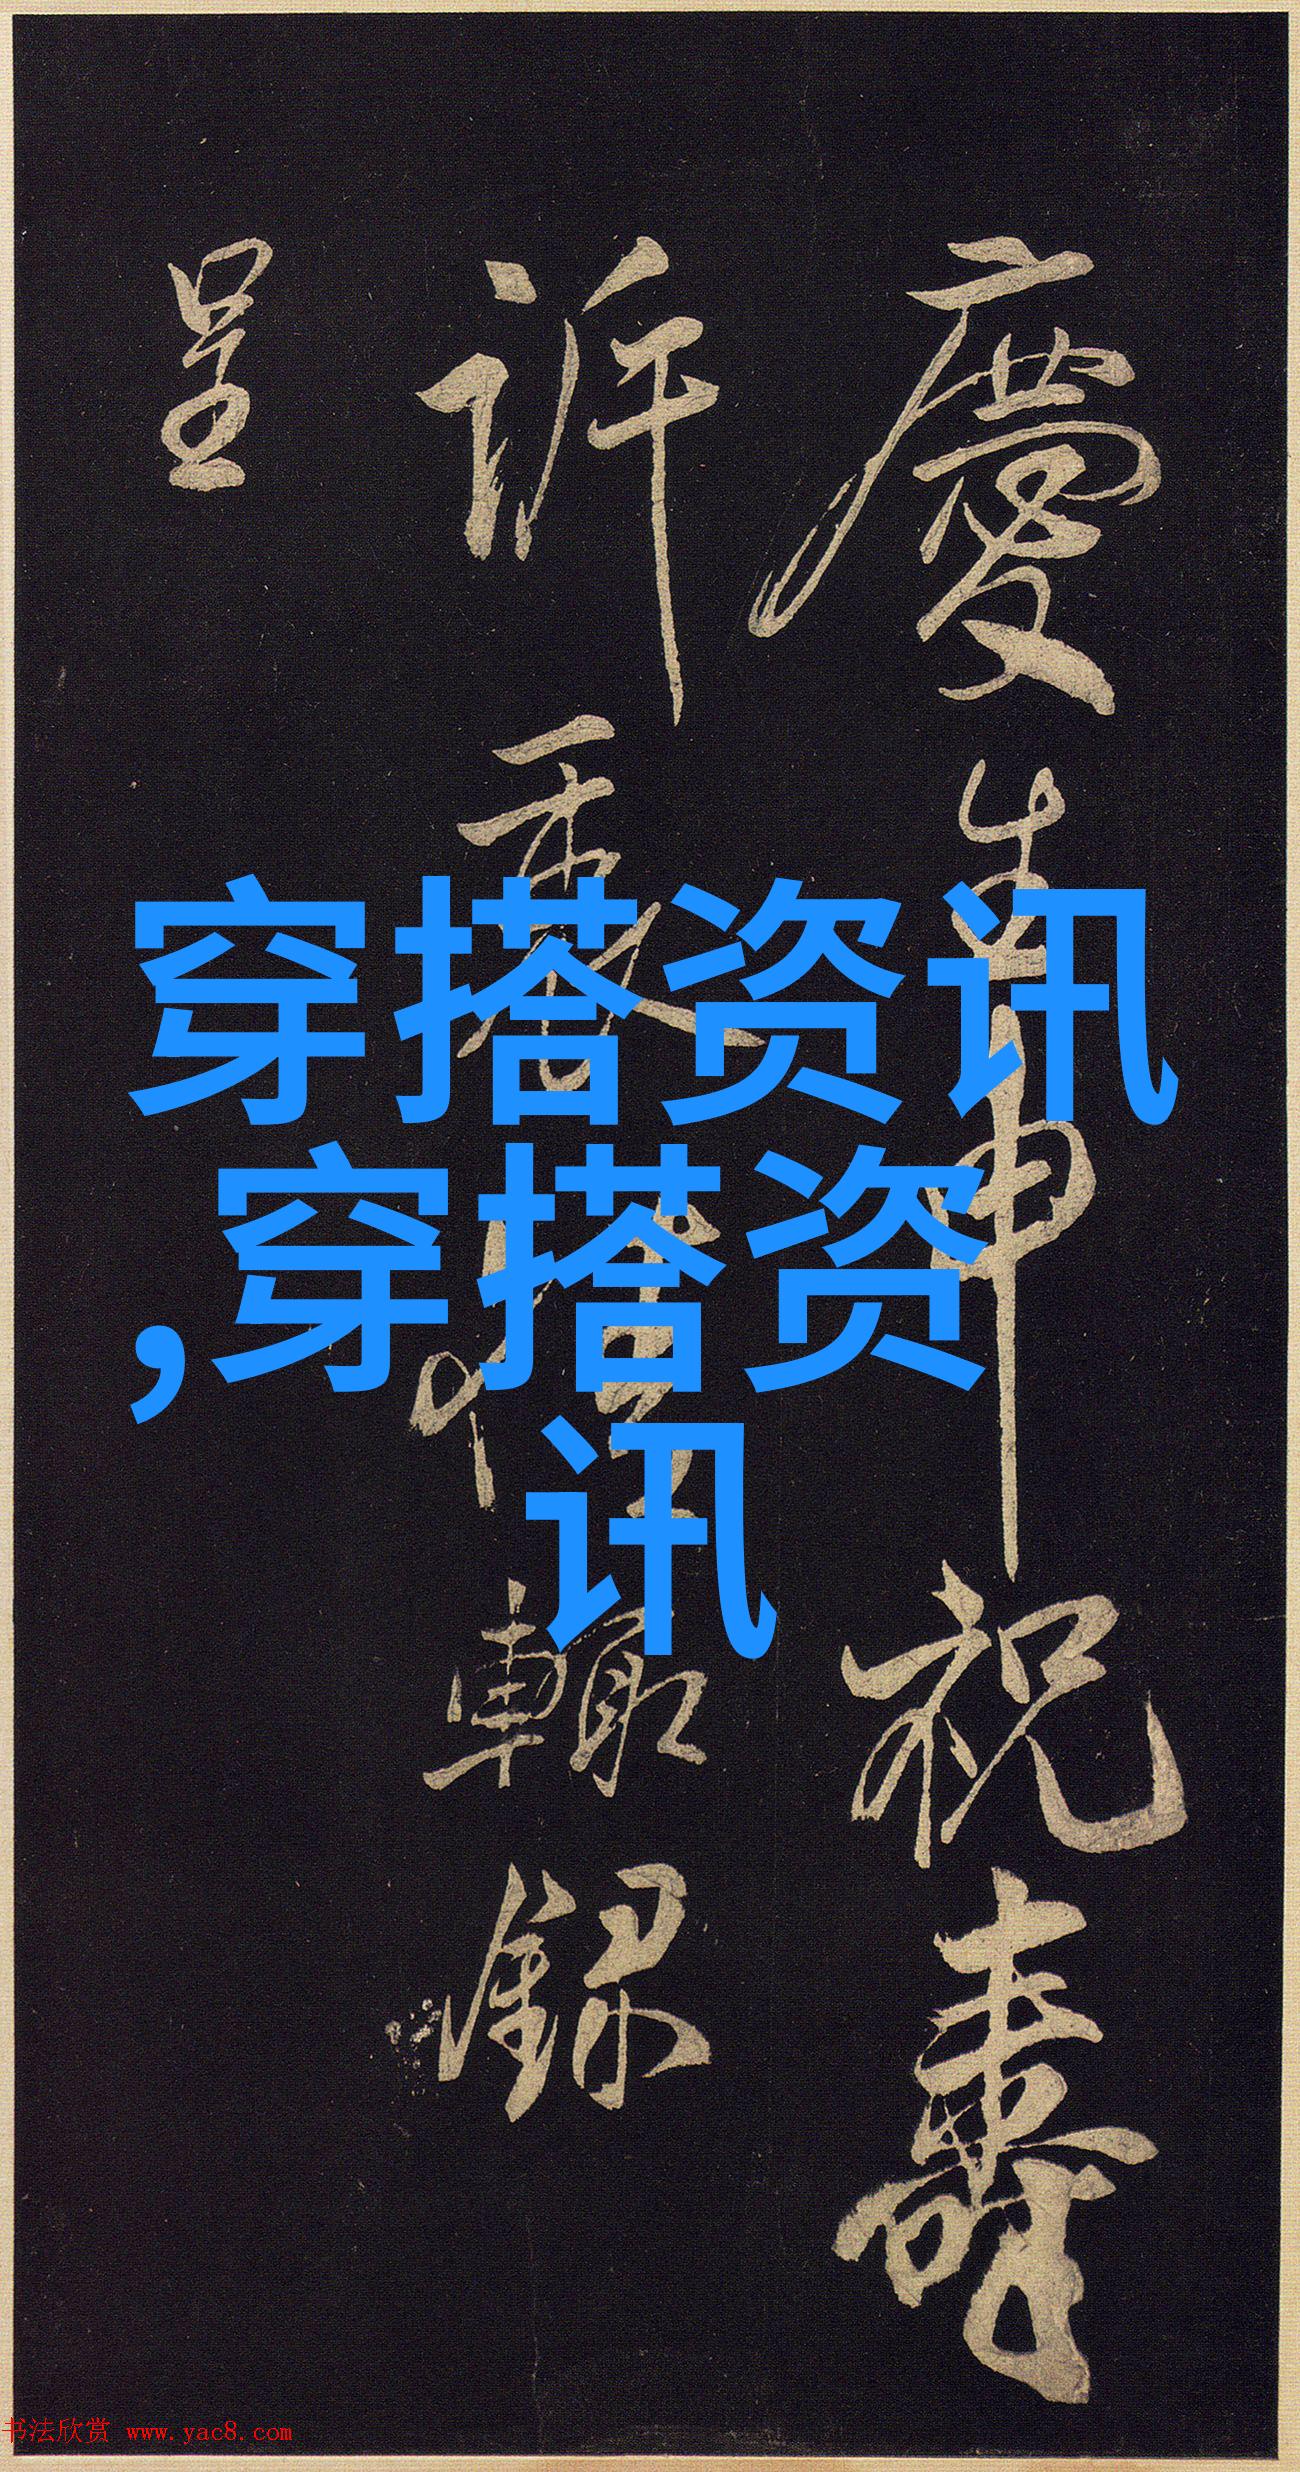 慶生申祝壽
訢
輙錄
呈
穿搭资讯
,穿搭资
讯
书法欣赏 www.yac8.com